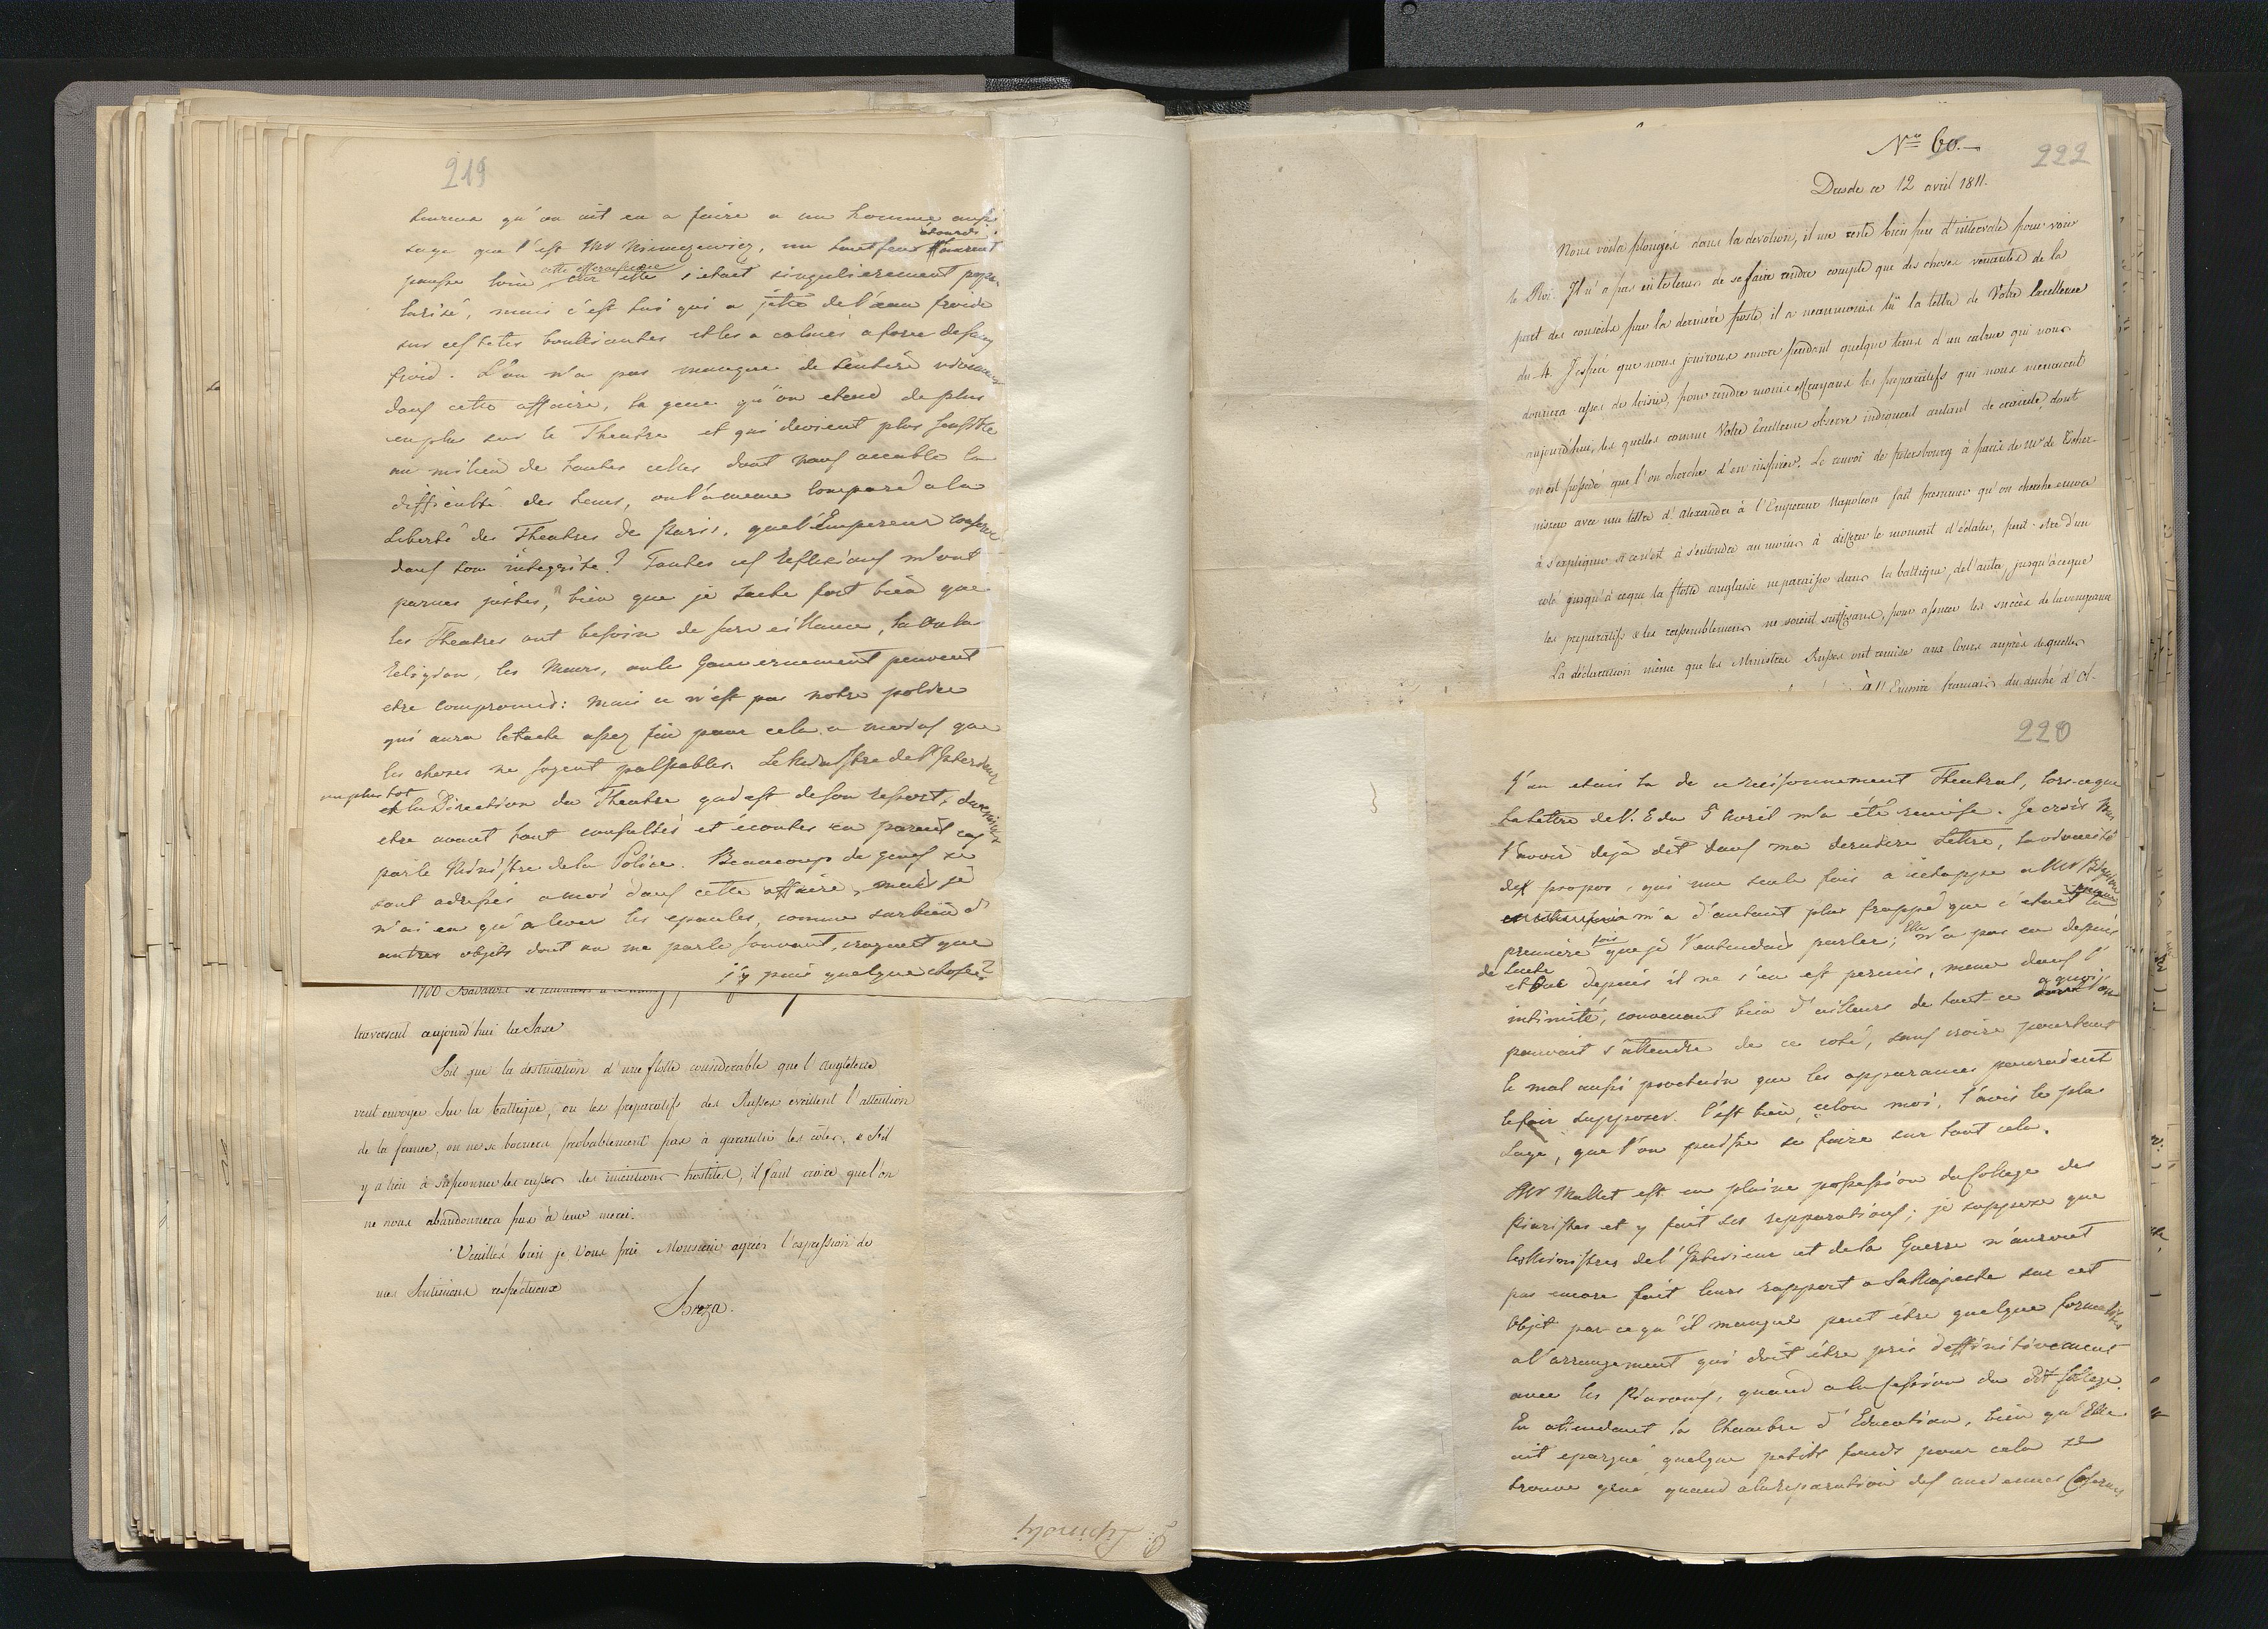 219
heureux qu'on ait eu a faire a un homme aussi
sage que l'est Mr Niemczewicz, un tout seul étourdi
cette effervescence s'etait singulierement popu-
larisé, mais c'est lui qui a jetté de l'eau froide
sur ces tetes bouliantes et les a calmés a force de sang
froid. L'on n'a pas manqué de
dans cette affaire, la gene qu'on etend de plus
en plus sur le Theatre et qui devient plus sensible
au milieu de toutes celles dont nous accable la
difficulté des tems, on l'a meme comparé a la
Liberté des Theatres de Paris, que l'Empereur conserve
dans son integrité? Toutes ces reflexions m'ont
parues justes, bien que je sache fort bien que
les Theatres ont besoin de surveillance, la ou la
Religion, les Moeurs, ou le Gouvernement peuvent
etre compromis: mais ce n'est pas notre police
qui aura le tacte assez fin pour cela, a moins que
les choses ne soyent palpables. Le Ministre de l'Interieur
ou plus tot
la Direction du Theatre qui est de son ressort, devroient
etre avant tout consultés et écoutés en pareil cas
par le Ministre de la Police. Beaucoup de gens se
sont adressés a moi dans cette affaire, mais je
n'ai eu qu'a lever les epaules, comme sur bien d'
autres objets dont on me parle souvent, croyant que
j'y puis quelque chose?
traversent aujourd'hui la Saxe
Soit que la destination d'une flotte considerable que l'Angleterre
veut envoyer sur la battique, ou les preparatifs des Russes eveillent l'attention
de la france, on ne se bornera probablement pas à garantir les côtes, & s'il
y a lieu à soupconner les russes des intentions hostiles, il faut croire que l'on
ne nous abandonnera pas à leur merci.
Veuillés bien je Vous prie Monsieur agréer l'expression de
mes Sentimens respectueux
Breza.
Nro 60.
222
Dresde ce 12 avril 1811.
Nous voila plongés dans la devotion, il me reste bien peu d'intervale pour voir
le Roi. Il n'a pas eu le tems de se faire rendre compte que des choses venantes de la
part des conseils par la derniere poste, il a neanmoins lû la lettre de Votre Excellence
du 4. J'espere que nous jouirons encore pendant quelque tems d'un calme qui nous
donnera assés de loisir, pour rendre moins effrayans les preparatifs qui nous menacent
aujourd'hui, les quelles comme Votre Excellence observe indiquent autant de crainte, dont
on est possedé que l'on cherche d'en inspirer. Le renvoi de Petersbourg à Paris de Mr de Tcher-
nischew avec une lettre d'Alexandre à l'Empereur Napoléon fait presumer qu'on cherche encore
à s'expliquer si ce n'est à s'entendre au moins à differer le moment d'éclater, peut-etre d'un
coté jusqu'à ceque la flotte anglaise ne paraisse dans la battique, de l'autre, jusqu'à ceque
les preparatifs & les rassemblemens ne soient suffisans, pour assurer les succès de la vengeance
La déclaration même que les Ministres Russes ont remise aux Cours auprès desquelles
à l'Empire francais du duché d'Ol-
220
J'en etais la de ce raisonnement Theatral, lors-ceque
la lettre de V. E du 5 Avril m'a été remise. Je crois Vous
l'avoir deja dit dans ma derniere Lettre, la vivacité
des propos, qui une seule fois a echappé a Mr Bignon
m'a d'autant plus frappé que c'etait la
premiere fois que je l'entendais parler; Elle n'a pas eu depuis
de suite
et que depuis il ne s'en est permis, meme dans l'
intimité, convenant bien d'ailleurs de tout ce a quoi l'on
pouvait s'attendre de ce coté, sans croire pourtant
le mal aussi prochain que les apparances pourraient
le faire supposer. C'est bien, selon moi, l'avis le plus
sage, que l'on puisse se faire sur tout cela.
Mr Mallet est en pleine possession du College des
Piaristes et y fait ses repparations; je suppose que
les Ministres de l'Interieur et de la Guerre n'auront
pas encore fait leurs rapport a Sa Majesté sur cet
objet par-ce qu'il manque peut etre quelque formalités
a l'arrangement qui doit être pris deffinitivement
avec les Piarons, quand a la cession du dit College.
En attendant la Chambre d'Education, bien qu'Elle
ait epargné quelque petits fonds pour cela se
trouve gené quand a la reparation des anciennes Casernes